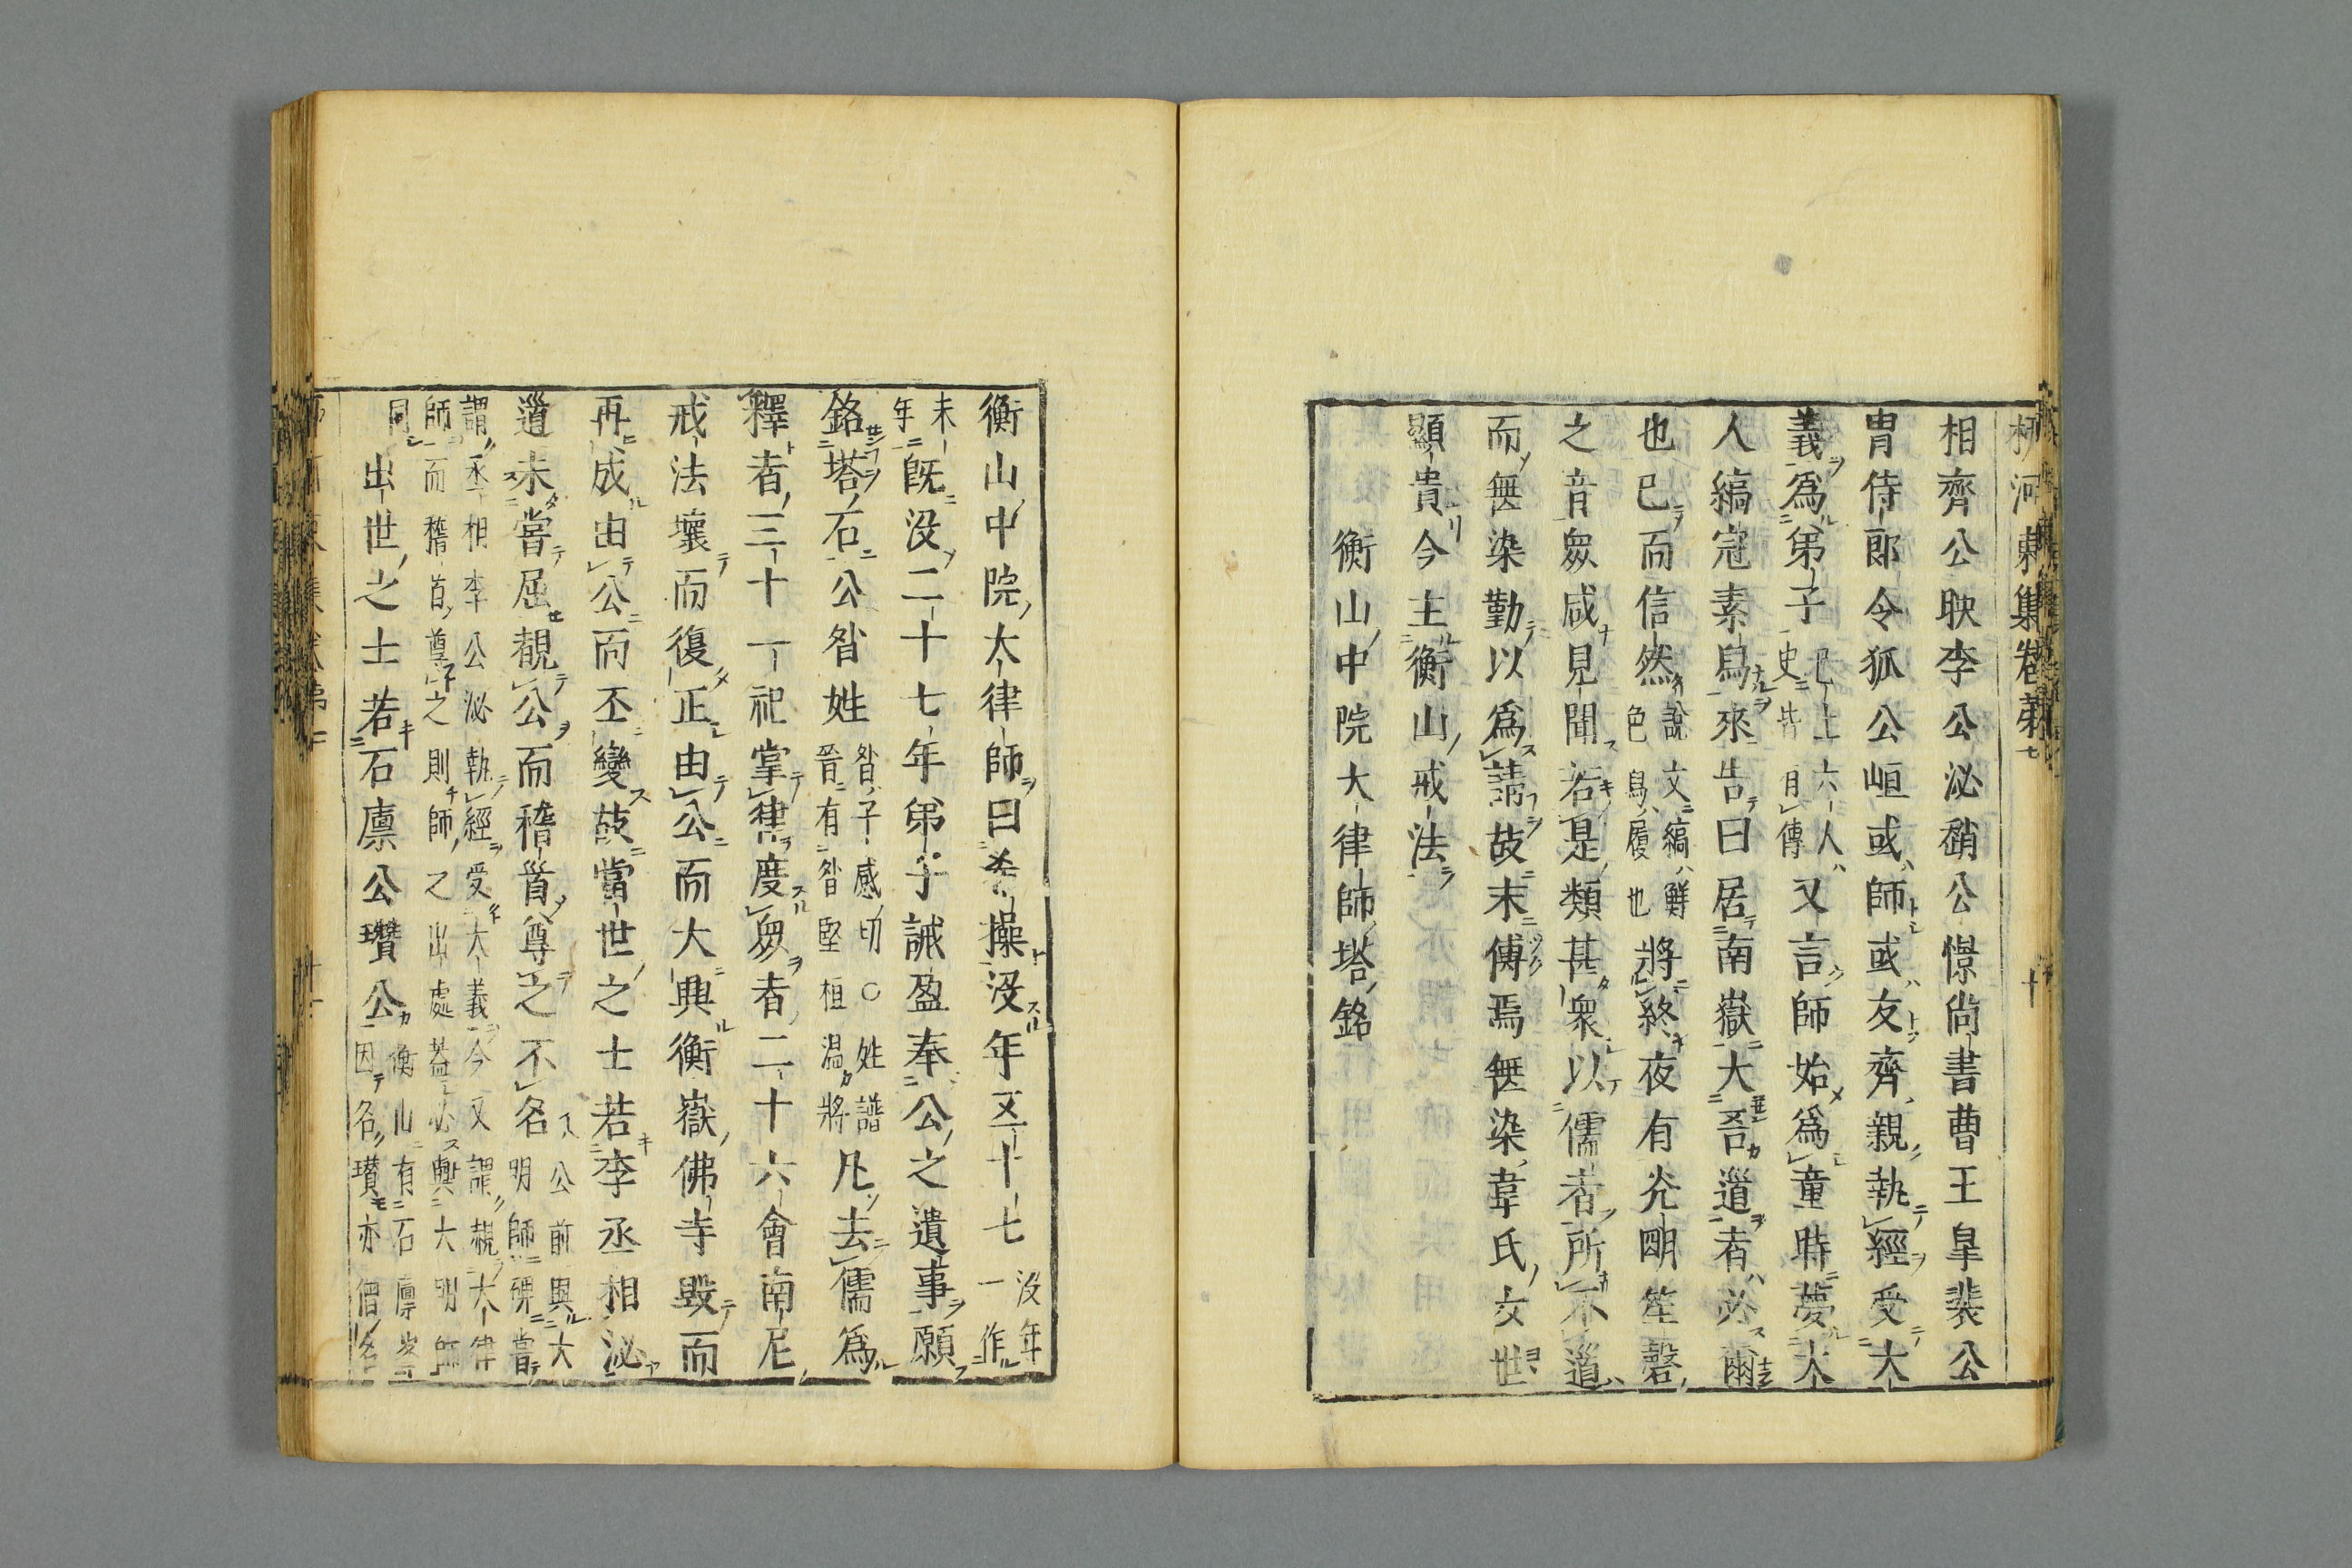 柳河東集卷第七 十
相齊公映李公泌趙公憬尚書曹王皐裴公
冑侍郎令狐公峘或師或友齊親執經受大
義爲弟子 已上六人史皆有傳 又言師始爲童時夢大
人縞冠素舄來告曰居南嶽大吾道者必爾
也已而信然 說文縞鮮色舄履也 將終夜有光明笙磬
之音衆咸見聞若是類甚衆以儒者所不道
而無染勤以爲請故末傳焉無染韋氏女世
顯貴今主衡山戒法
衡山中院大律師塔銘
衡山中院大律師曰希操没年五十七 没年一作
未年 既没二十七年弟子誡盈奉公之遺事願
銘塔石公咎姓 咎子感切○姓譜晉有咎堅柤温將 凡去儒爲
釋者三十一祀掌律度衆者二十六會南尼
戒法壞而復正由公而大興衡嶽佛寺毀而
再成由公而丕變故當世之士若李丞相泌
道未嘗屈覩公而稽首尊之不名 公前與大明師碑嘗
謂丞相李公泌執經受大義今又謂覩大律
師而稽首尊之則師之出處蓋必與大明師
同 出世之士若石廩公瓚公 衡山有石廩峯因名瓚亦僧名